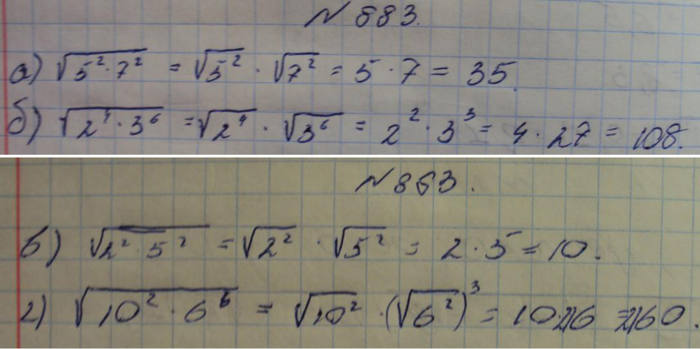 № 683.
а) √5²·7² = √5² · √7² = 5 · 7 = 35.
б) √2⁴·3⁶ = √2⁴ · √3⁶ = 2² · 3³ = 4 · 27 = 108.
№ 863.
б) √2²·5² = √2² · √5² = 2 · 5 = 10.
г) √10²·6⁶ = √10² · (√6²)³ = 10·216 = 2160.